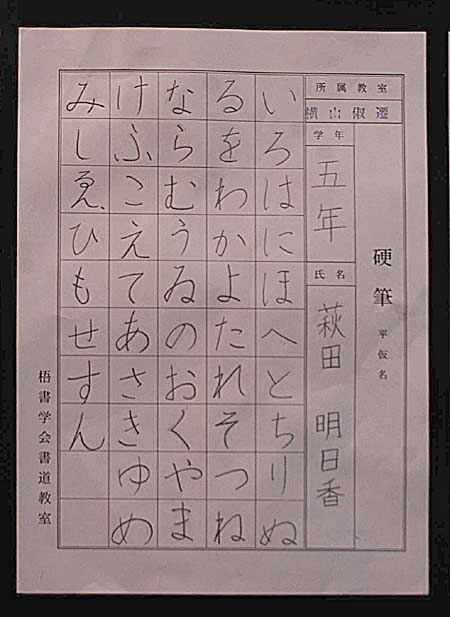 硬筆 平仮名
所属教室
横山俶遷
学年
五年
氏名
萩田 明日香
いろはにほへとちりぬ
るをわかよたれそつね
ならむうゐのおくやま
けふこえてあさきゆめ
みしゑひもせすん
梧書学会書道教室